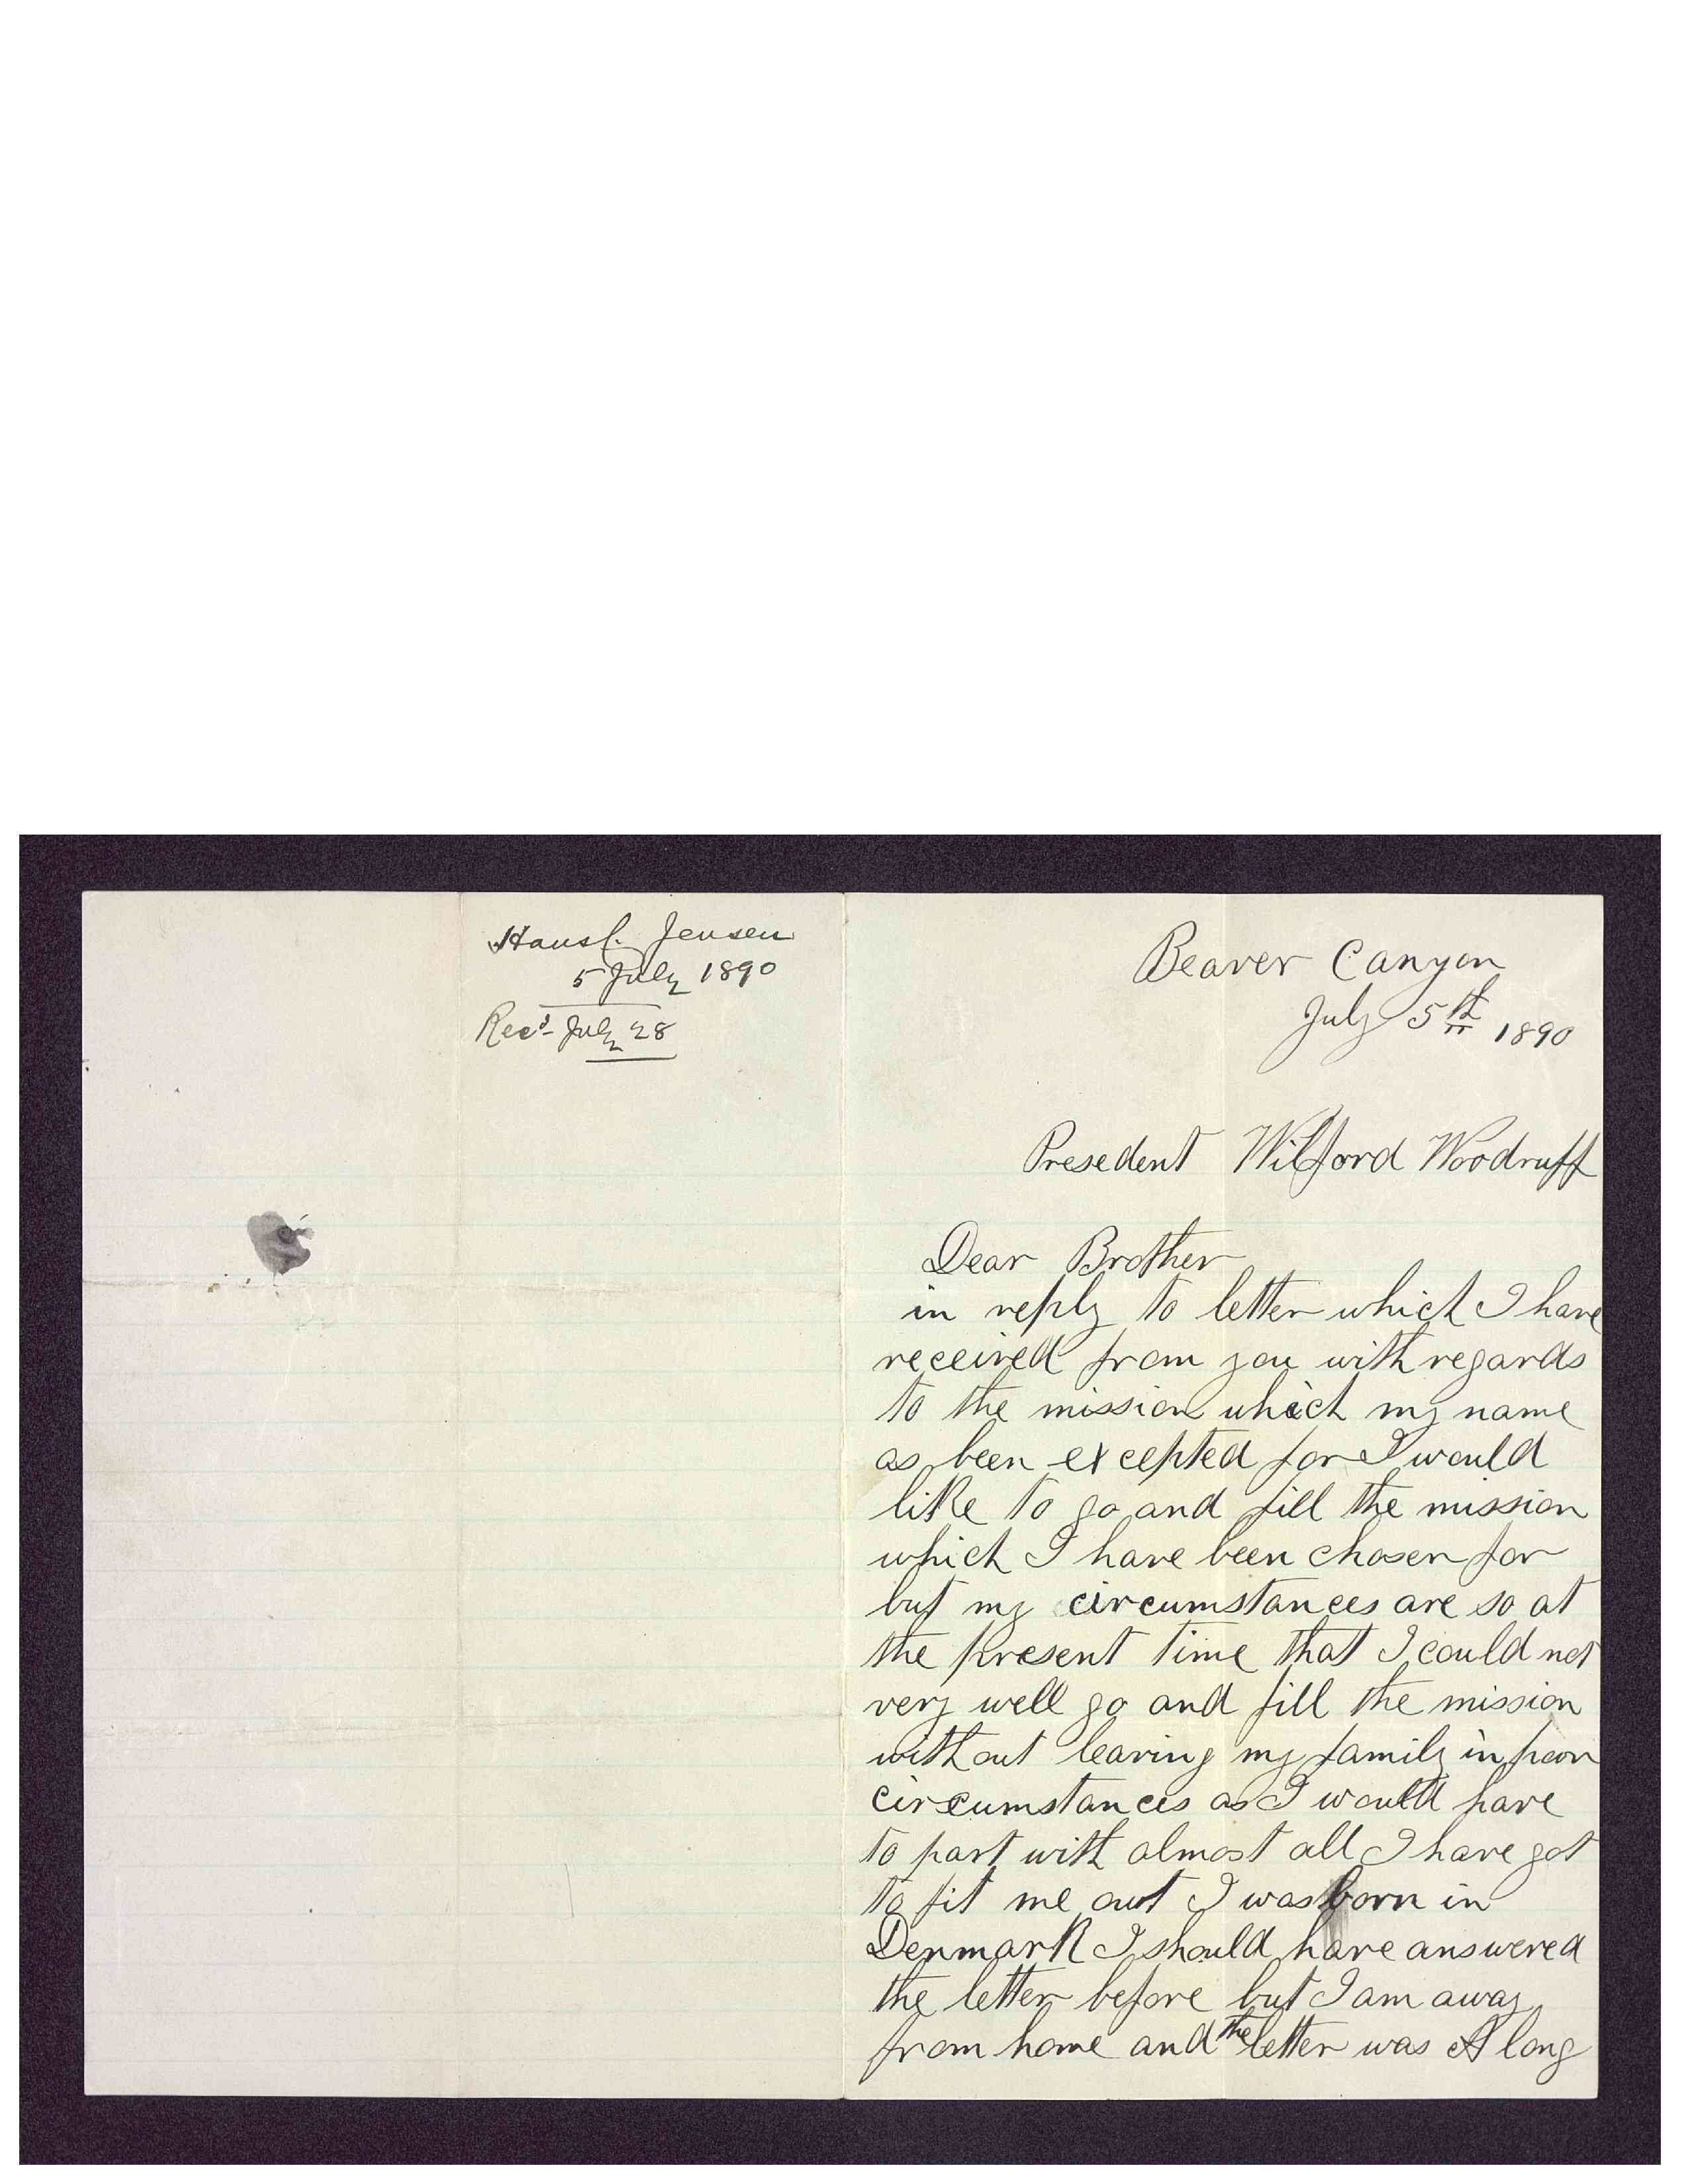 Hans C. Jensen
5 July 1890
Recd July 28
Beaver Canyon
July 5th 1890
Presedent Wilford Woodruff
Dear Brother
in reply to letter which I have
received from you with regards
to the mission which my name
as been excepted for I would
like to go and fill the mission
which I have been chosen for
but my circumstances are so at
the present time that I could not
very well go and fill the mission
without leaving my family in poor
circumstances as I would have
to part with almost all I have got
to fit me out I was born in
Denmark I should have answered
the letter before but I am away
from home and the letter was A long